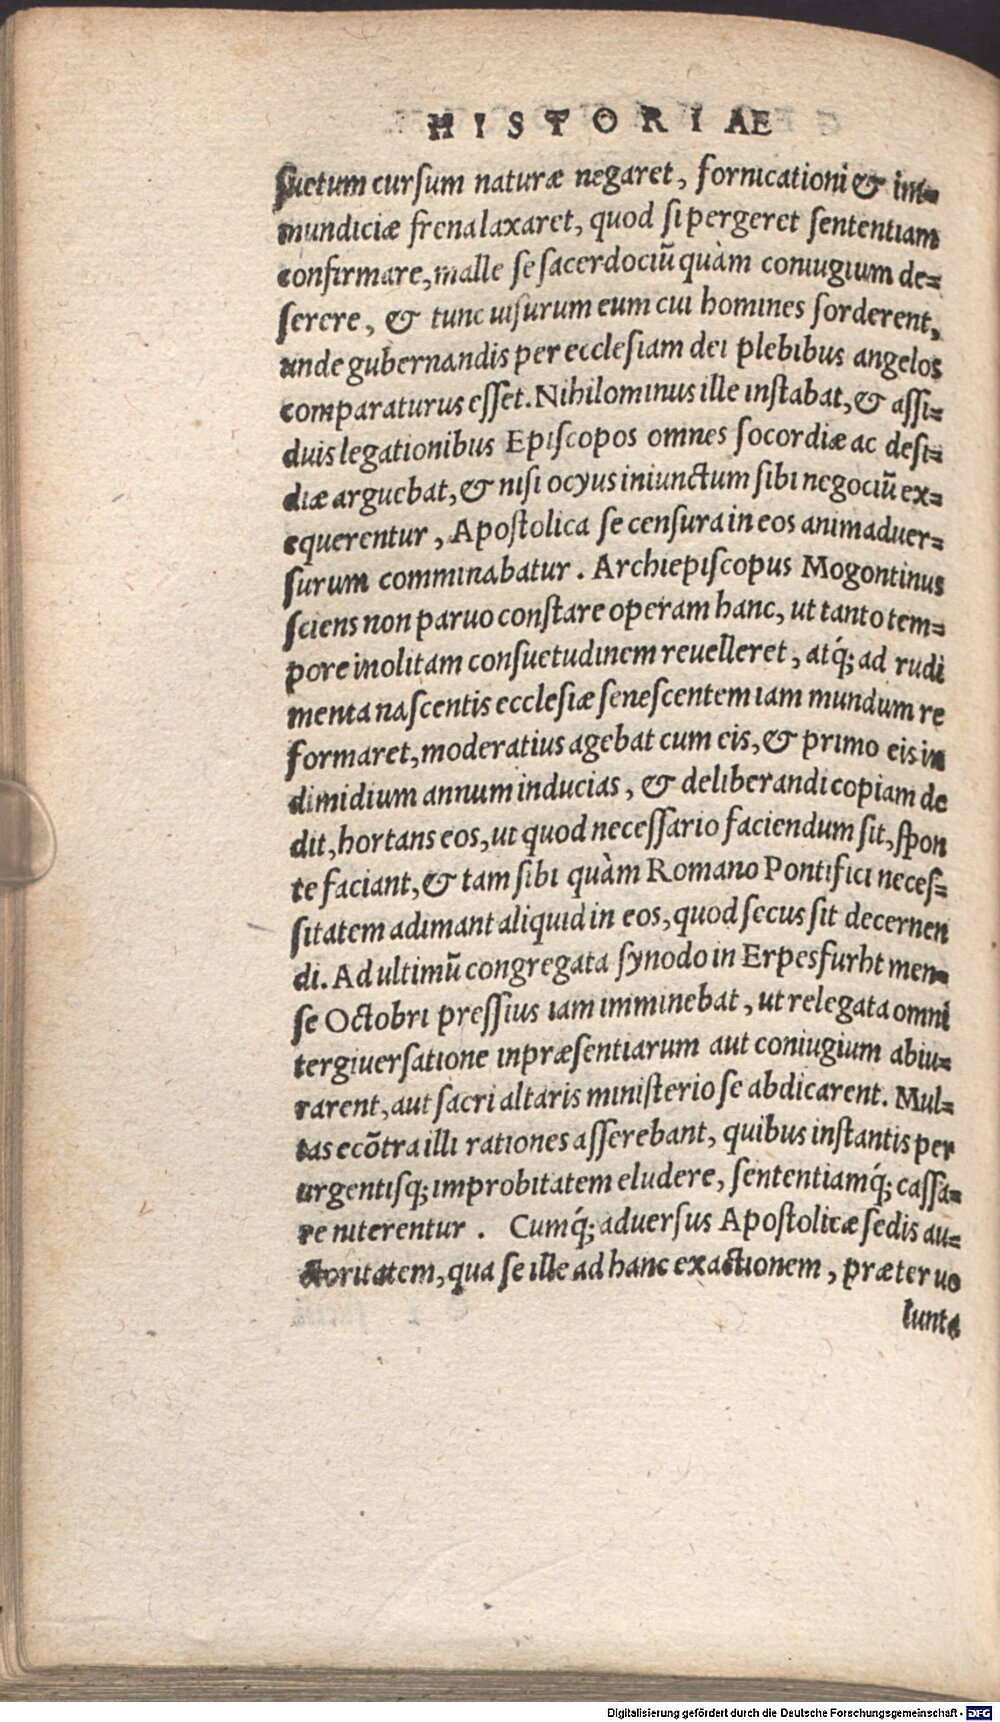 HISTORIAE
ſuetum curſum naturæ negaret, fornicationi & im=
mundiciæ frena laxaret, quod ſi pergeret ſententiam
confirmare, malle ſe ſacerdociũ quàm coniugium de=
ſerere, & tunc uiſurum eum cui homines ſorderent,
unde gubernandis per eccleſiam dei plebibus angelos
comparaturus eſſet. Nihilominus ille inſtabat, & aſſi=
duis legationibus Epiſcopos omnes ſocordiæ ac deſi=
diæ arguebat, & niſi ocyus iniunctum ſibi negociũ ex=
equerentur, Apoſtolica ſe cenſura in eos animaduer=
ſurum comminabatur. Archiepiſcopus Mogontinus
ſciens non paruo conſtare operam hanc, ut tanto tem=
pore inolitam conſuetudinem reuelleret, atq́; ad rudi
menta naſcentis eccleſiæ ſeneſcentem iam mundum re
formaret, moderatius agebat cum eis, & primo eis in
dimidium annum inducias, & deliberandi copiam de
dit, hortans eos, ut quod neceſſario faciendum ſit, ſpon
te faciant, & tam ſibi quàm Romano Pontifici neceſ=
ſitatem adimant aliquid in eos, quod ſecus ſit decernen
di. Ad ultimũ congregata ſynodo in Erpesfurht men=
ſe Octobri preſſius iam imminebat, ut relegata omni
tergiuerſatione inpræſentiarum aut coniugium abiu=
rarent, aut ſacri altaris miniſterio ſe abdicarent. Mul=
tas ecõtra illi rationes aſſerebant, quibus inſtantis per
urgentiſq; improbitatem eludere, ſententiamq́; caſſa=
re niterentur. Cumq́; aduerſus Apoſtolicæ ſedis au=
ctoritatem, qua ſe ille ad hanc exactionem, præter uo
lunta
Digitalisierung gefördert durch die Deutsche Forschungsgemeinschaft - DFG